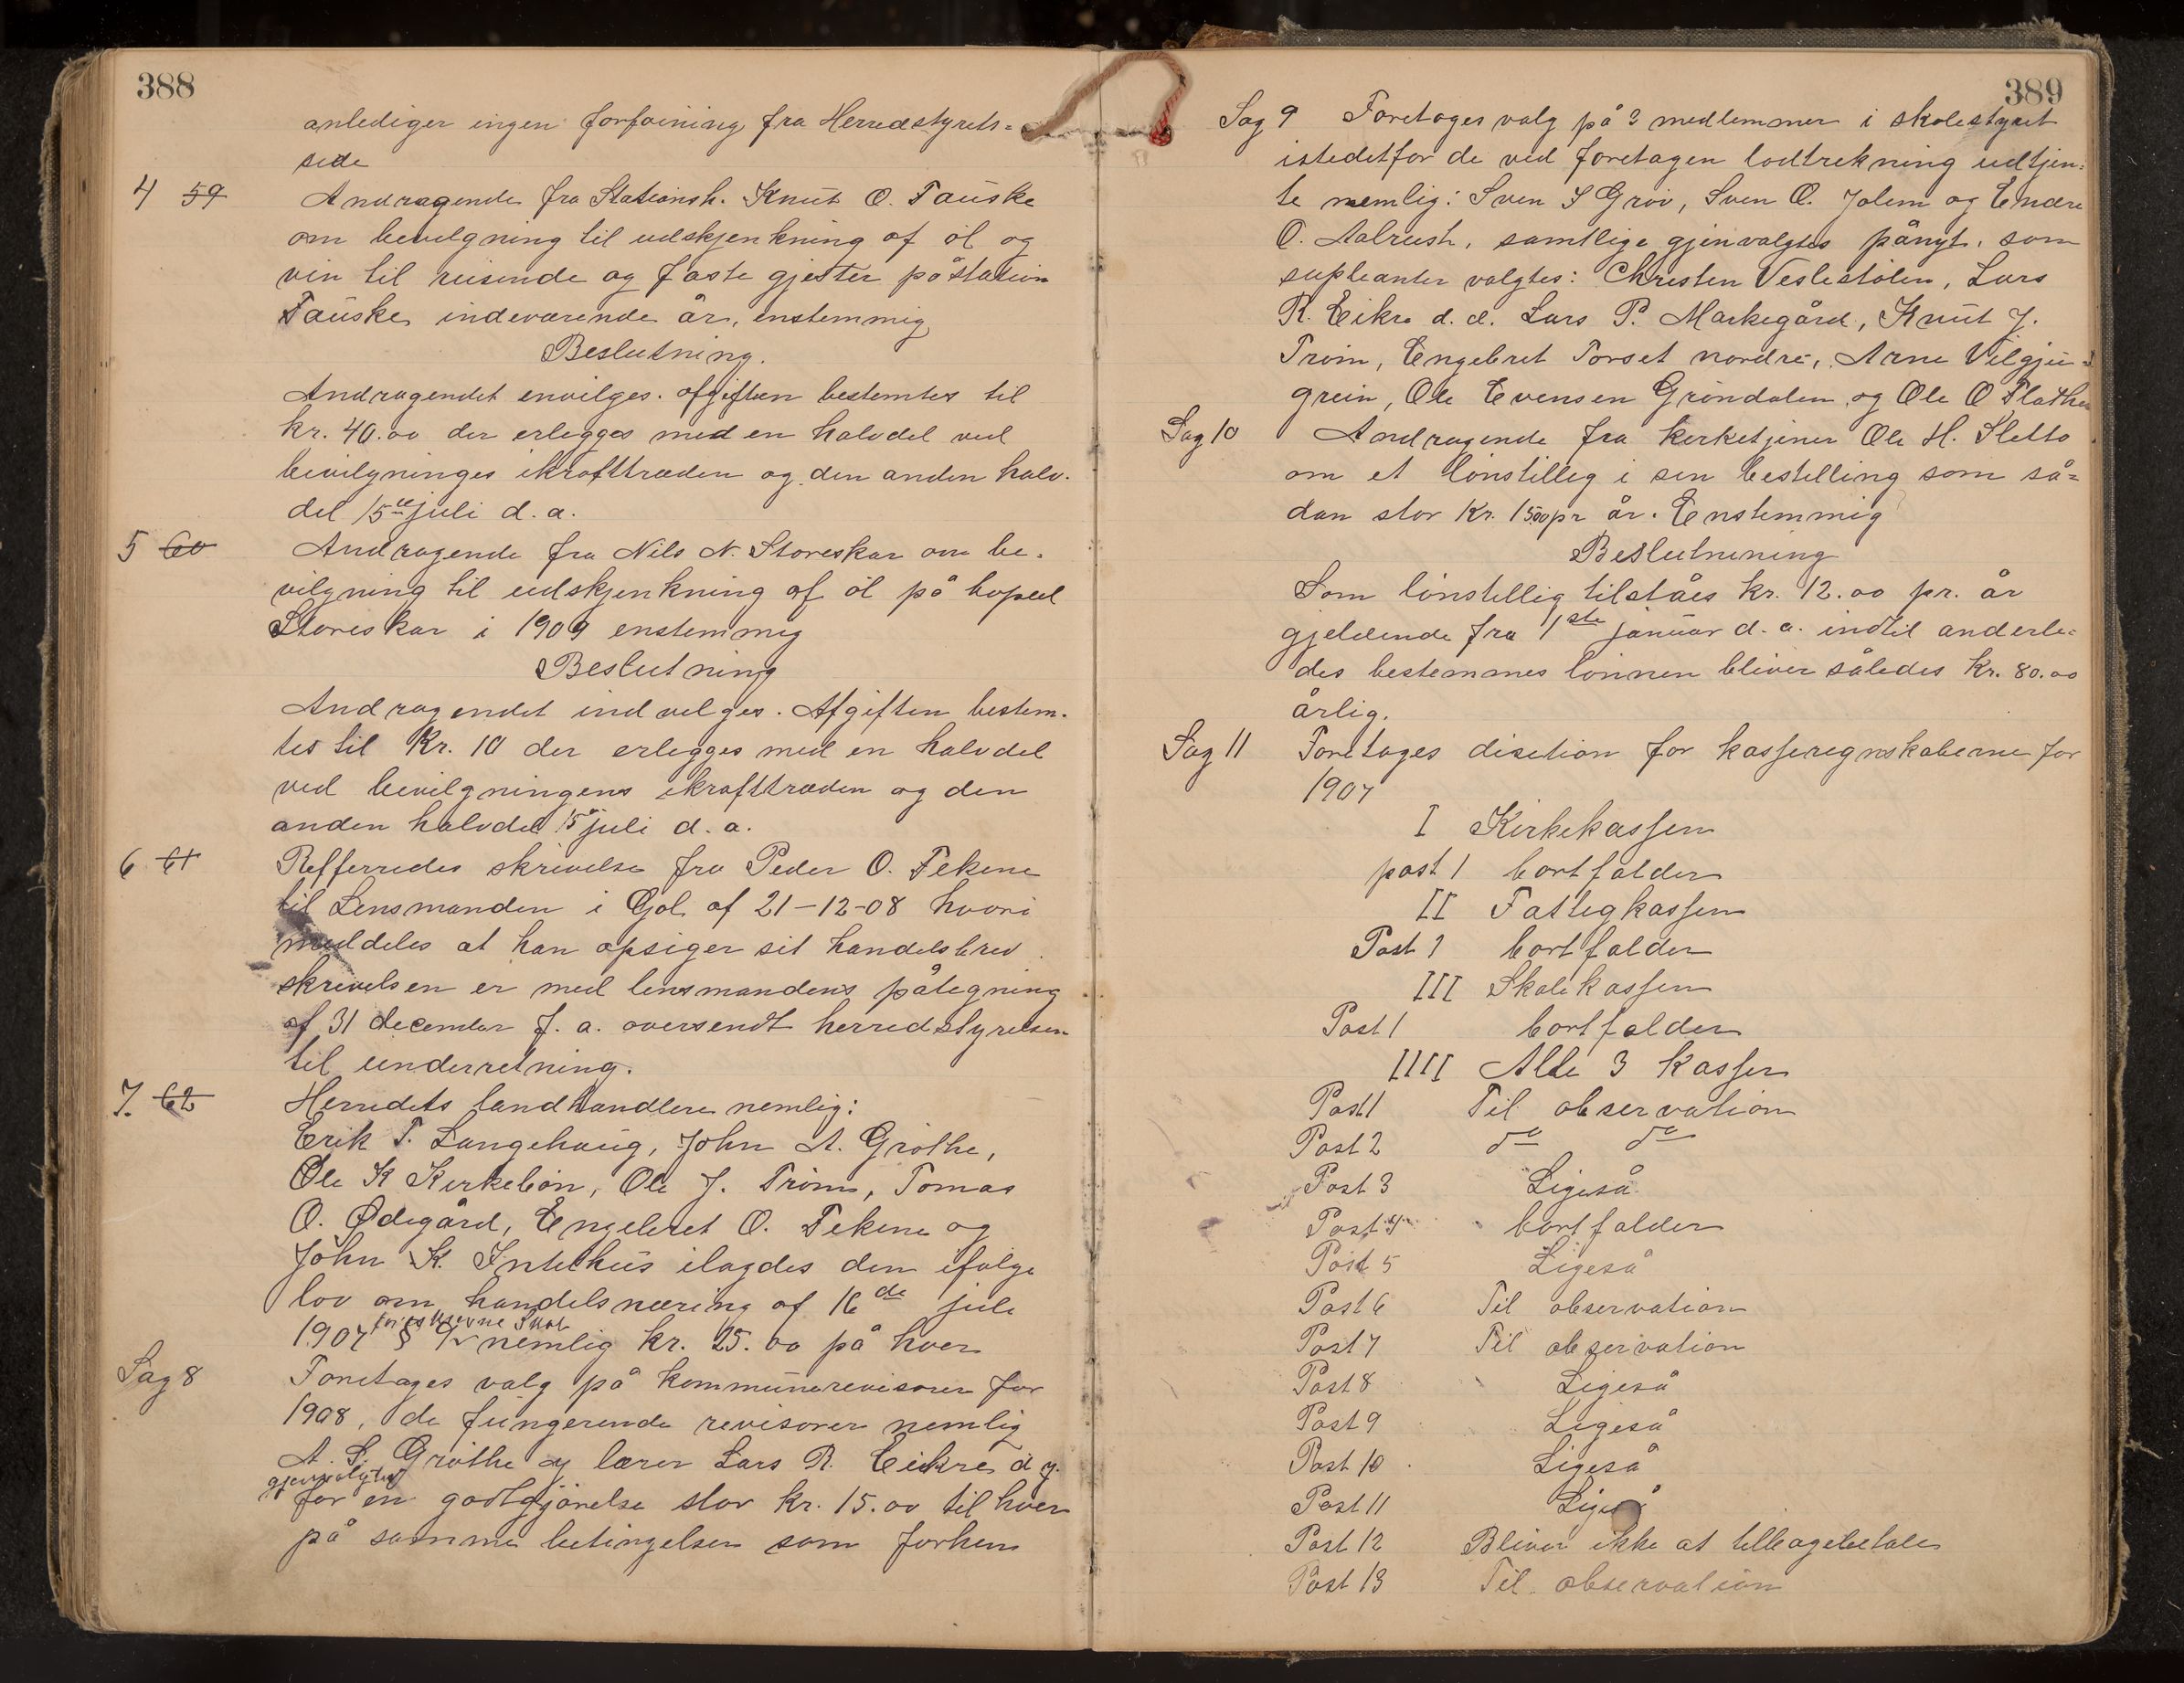 388
anlediger ingen forfoining fra Herredstyrets=
side
4 59 Andragende fra Stationsh. Knut O. Fauske
om bevilgning til udskjenkning af öl og
vin til reisende og faste gjester på station
Fauske indeværende år, enstemmig
Beslutning.
Andragendet envilges. afgiften bestemtes til
kr. 40.00 der erlegges med en halvdel ved
bevilgninges ikrafttræden og den anden halv-
del 15de juli d. a.
5 60 Andragende fra Nils N. Storeskar om be-
vilgning til udskjenkning af öl på bopæl
Storeskar i 1909 enstemmig
Beslutning
Andragendet indvelges. Afgiften bestem-
tes til Kr. 10 der erlegges med en halvdel
ved bevilgningens ikrafttræden og den
anden halvdel 15 juli d. a.
6 61 Refferredes skrivelse fra Peder O. Fekene
til Lensmanden i Gol af 21-12-08 hvori
meddeles at han opsiger sit handelsbrev.
skrivelsen er med lensmandens påtegning
af 31 december f. a. oversendt herredstyrelsen
til underretning.
7. 62 Herredets landhandlere nemlig:
Erik T. Langehaug, John A. Gröthe,
Ole K Kirkebön, Ole J. Tröim, Tomas
O. Ødegård, Engebret O. Fekene og
John K. Intehus ilagdes den ifølge
lov om handelsnæring af 16de juli
foreskrevne skat
1907 § 9 nemlig kr. 25.00 på hver
Sag 8 Foretages valg på kommunerevisorer for
1908, de fungerende revisorer nemlig
A. S. Gröthe og lærer Lars R. Eikre d y.
gjenvalgtes
for en godtgjörelse stor kr. 15.00 til hver
på samme betingelser som forhen
389
Sag 9 Foretages valg på 3 medlemmer i skolestyret
istedetfor de ved foretagen lodtrekning udtjen=
te nemlig: Sven S Gröv, Sven O. Jolem og Endre
O. Aalrust, samtlige gjenvalgtes pånyt, som
supleanter valgtes: Christen Veslestölen, Lars
R. Eikre d. e. Lars P. Markegård, Knut J.
Tröim, Engebret Torset nordre, Arne Vilgju=
grein, Ole Evensen Gröndalen og Ole O Flathen
Sag 10 Andragende fra kirketjener Ole H. Sletto
om et lönstilleg i sen bestelling som så=
dan stor Kr. 1500 pr år. Enstemmig
Beslutnining
Som lönstillig tilståes kr. 12.00 pr. år
gjeldende fra 1ste januar d. a. indtil anderle=
des bestemmes lönnen bliver således Kr. 80.00
årlig.
Sag 11 Foretages disetion for kasseregnskaberne for
1907
I Kirkekassen
post 1 bortfalder
II Fattigkassen
Post 1 bortfalder
III Skolekassen
Post 1 bortfalder
IIII Alle 3 kasser
Post 1 Til observation
Post 2 do do
Post 3 Ligeså
Post 4 bortfalder
Post 5 Ligeså
Post 6 Til observation
Post 7 Til observation
Post 8 Ligeså
Post 9 Ligeså
Post 10 Ligeså
Post 11 Ligeså
Post 12 Bliver ikke at tilbagebetale
Post 13 Til observation